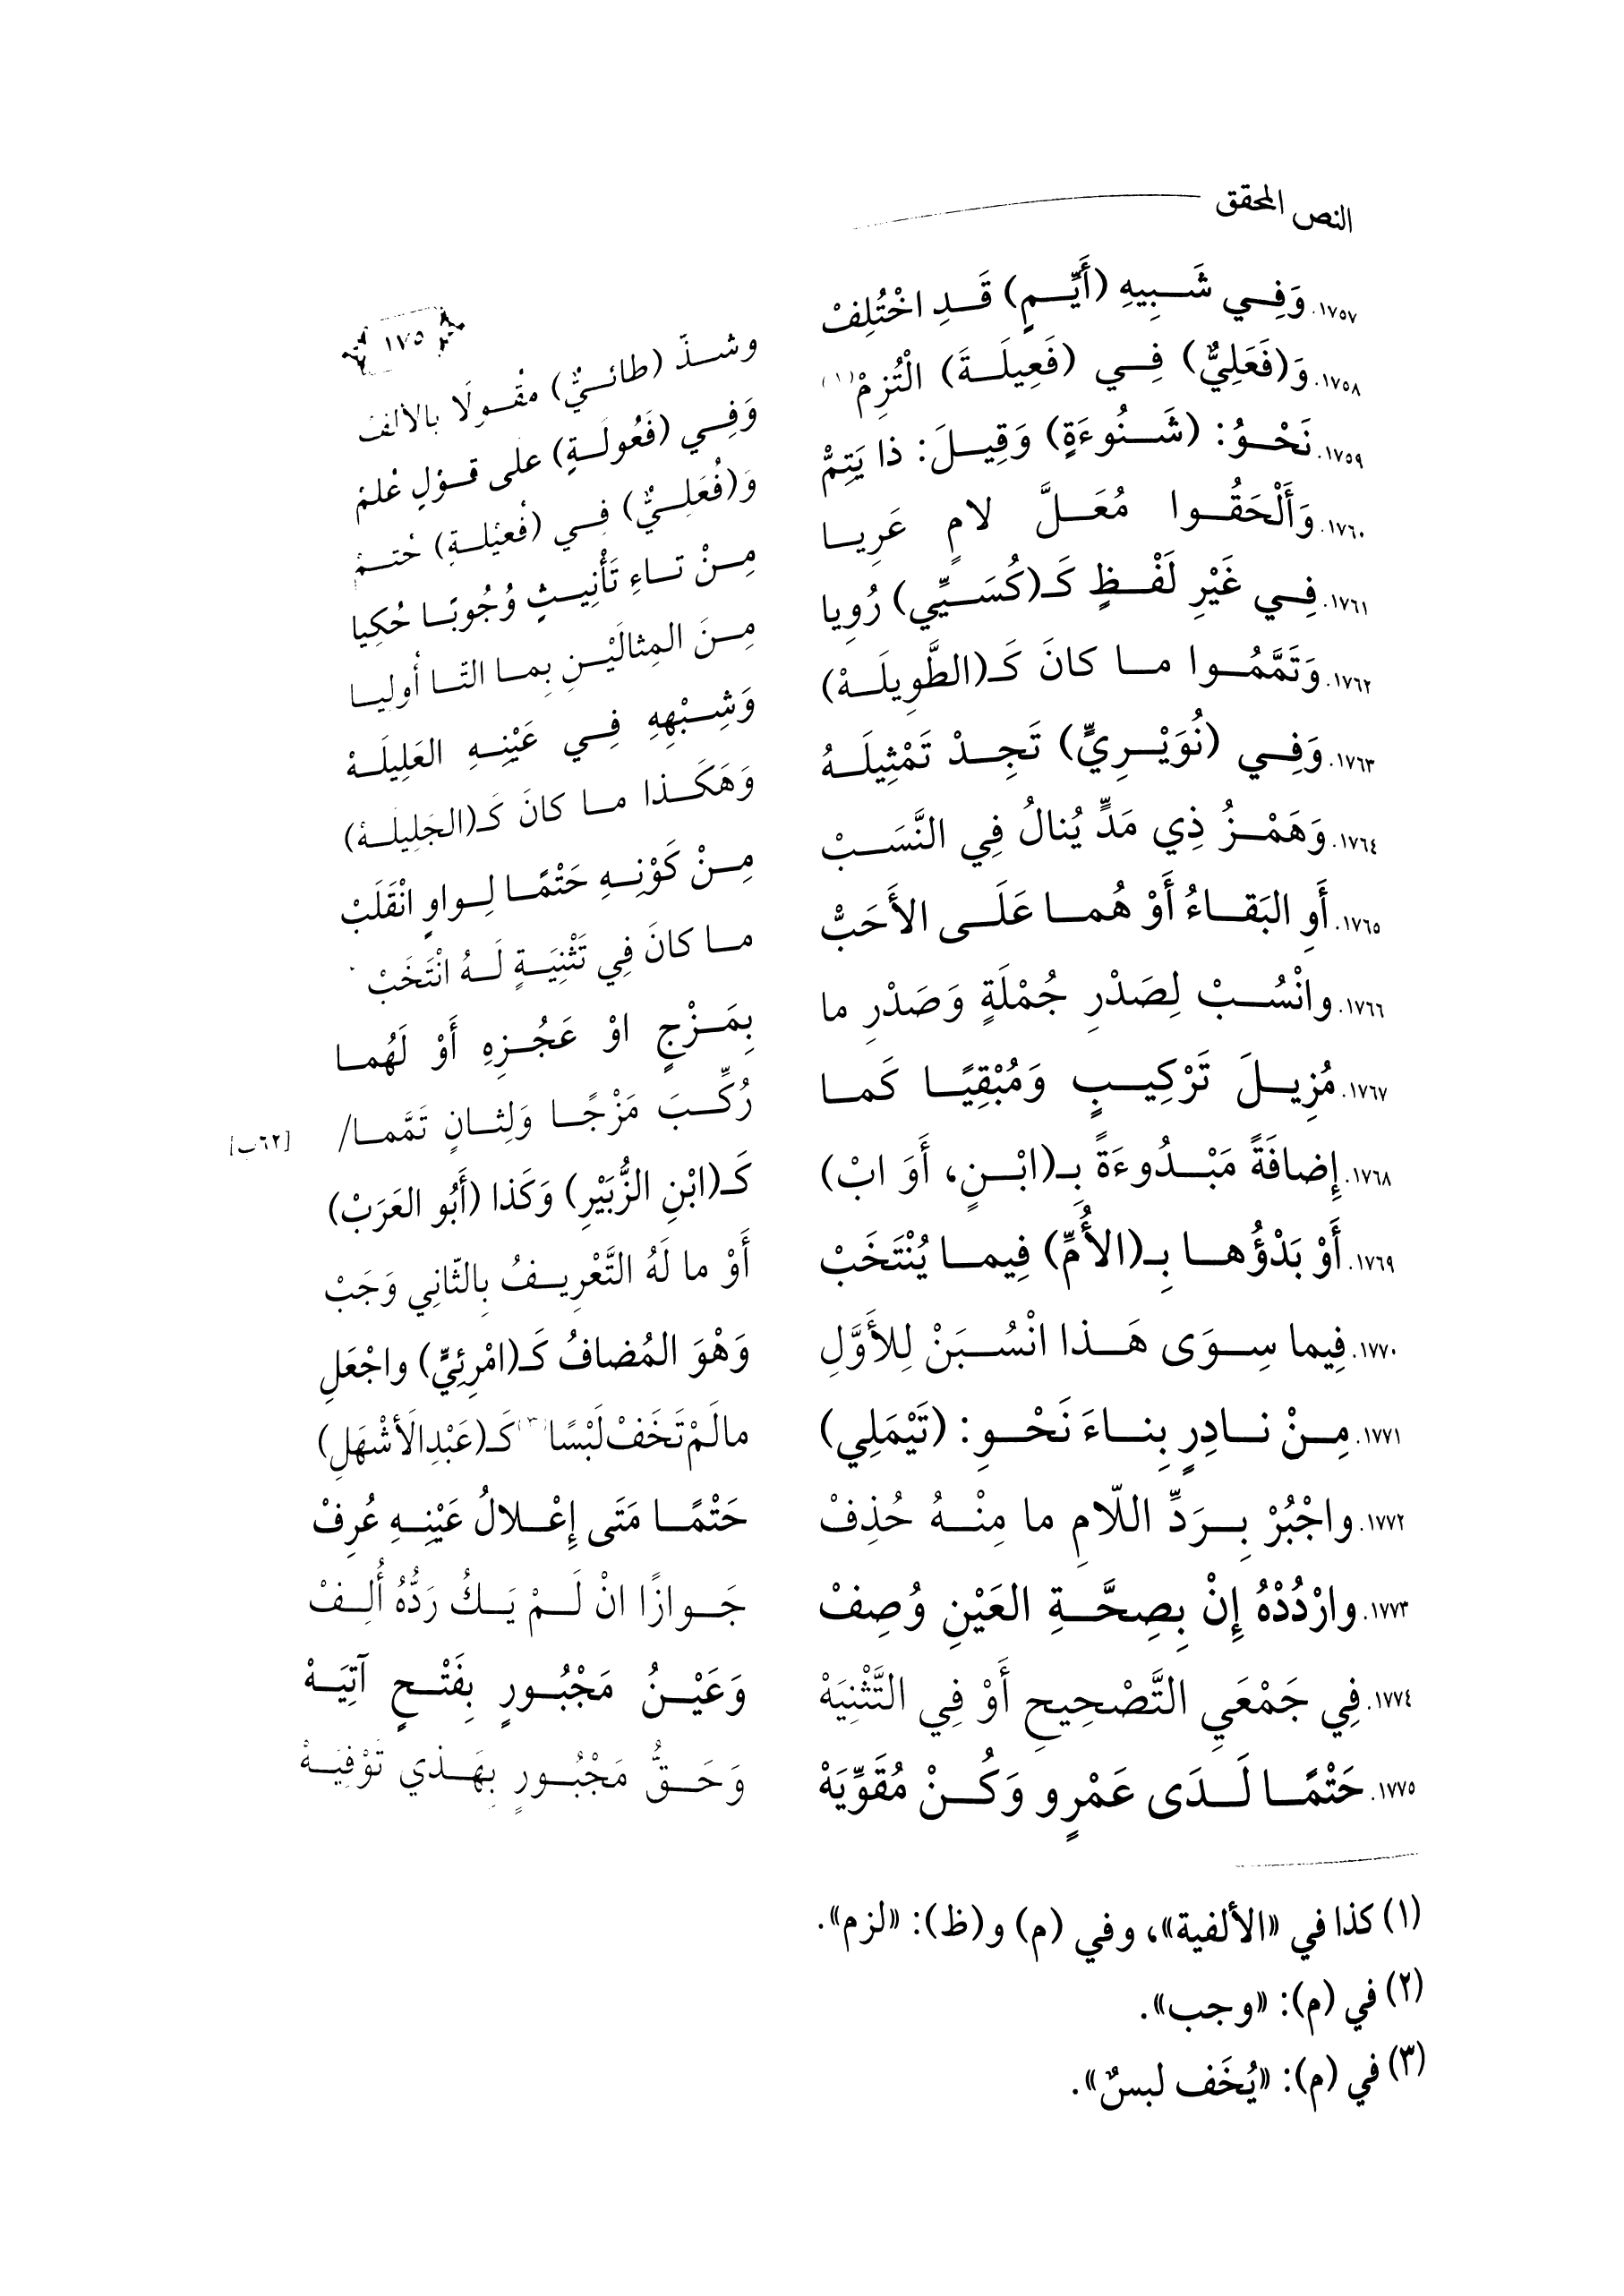 النص المحقق
١٧٥
١٧٥٧. وَفِي شَبِيهِ (أَيِّمٍ) قَدِ اخْتُلِفْ وشذَّ (طائيٌّ) مقُولًا بالألف
١٧٥٨. وَ(فَعَلِيٌّ) فِي (فَعِيلَةَ) الْتُزِمْ(١) وَفِي (فَعُولَةٍ) على قوْلٍ عُلمْ
١٧٥٩. نَحْوُ: (شَنُوءَةٍ) وَقِيلَ: ذا يَتِمُّ وَ(فُعَلِيٌّ) فِي (فُعيْلةٍ) حُتمْ
١٧٦٠. وَأَلْحَقُوا مُعَلَّ لامٍ عَرِيا مِنْ تاءِ تَأْنِيثٍ وُجُوبًا حُكِيا
١٧٦١. فِي غَيْرِ لَفْظٍ كَـ(كُسَيِّي) رُوِيا مِنَ المِثالَيْنِ بِما التّا أُولِيا
١٧٦٢. وَتَمَّمُوا ما كانَ كَـ(الطَّوِيلَهْ) وَشِبْهِهِ فِي عَيْنِهِ العَلِيلَهْ
١٧٦٣. وَفِي (نُوَيْرِيٍّ) تَجِدْ تَمْثِيلَهُ وَهَكَذا ما كانَ كَـ(الجَلِيلَهْ)
١٧٦٤. وَهَمْزُ ذِي مَدٍّ يُنالُ فِي النَّسَبْ مِنْ كَوْنِهِ حَتْمًا لِواوٍ انْقَلَبْ
١٧٦٥. أَوِ البَقاءُ أَوْ هُما عَلَى الأَحَبّْ ما كانَ فِي تَثْنِيَةٍ لَهُ انْتَخَبْ
١٧٦٦. وانْسُبْ لِصَدْرِ جُمْلَةٍ وَصَدْرِ ما بِمَزْجٍ اوْ عَجُزِهِ أَوْ لَهُما
١٧٦٧. مُزِيلَ تَرْكِيبٍ وَمُبْقِيًا كَما رُكِّبَ مَزْجًا وَلِثانٍ تَمَّما/ [٦٢ب]
١٧٦٨. إِضافَةً مَبْدُوءَةً بِـ(ابْنٍ، أَوَ ابْ) كَـ(ابْنِ الزُّبَيْرِ) وَكَذا (أَبُو العَرَبْ)
١٧٦٩. أَوْ بَدْؤُها بِـ(الأُمِّ) فِيما يُنْتَخَبْ أَوْ ما لَهُ التَّعْرِيفُ بِالثّانِي وَجَبْ
١٧٧٠. فِيما سِوَى هَذا انْسُبَنْ لِلأَوَّلِ وَهْوَ المُضافُ كَـ(امْرِئِيٍّ) واجْعَلِ
١٧٧١. مِنْ نادِرٍ بِناءَ نَحْوِ: (تَيْمَلِي) مالَمْ تَخَفْ لَبْسًا(٣) كَـ(عَبْدِ الَأشْهَلِ)
١٧٧٢. واجْبُرْ بِرَدِّ اللّامِ ما مِنْهُ حُذِفْ حَتْمًا مَتَى إِعْلالُ عَيْنِهِ عُرِفْ
١٧٧٣. وارْدُدْهُ إِنْ بِصِحَّةِ العَيْنِ وُصِفْ جَوازًا انْ لَمْ يَكُ رَدُّهُ أُلِفْ
١٧٧٤. فِي جَمْعَيِ التَّصْحِيحِ أَوْ فِي التَّثْنِيَهْ وَعَيْنُ مَجْبُورٍ بِفَتْحٍ آتِيَهْ
١٧٧٥. حَتْمًا لَدَى عَمْرٍو وَكُنْ مُقَوِّيَهْ وَحَقُّ مَجْبُورٍ بِهَذي تَوْفِيَهْ
(١) كذا في «الألفية»، وفي (م) و(ظ): «لزم».
(٢) في (م): «وجب».
(٣) في (م): «يُخَف لبسٌ».